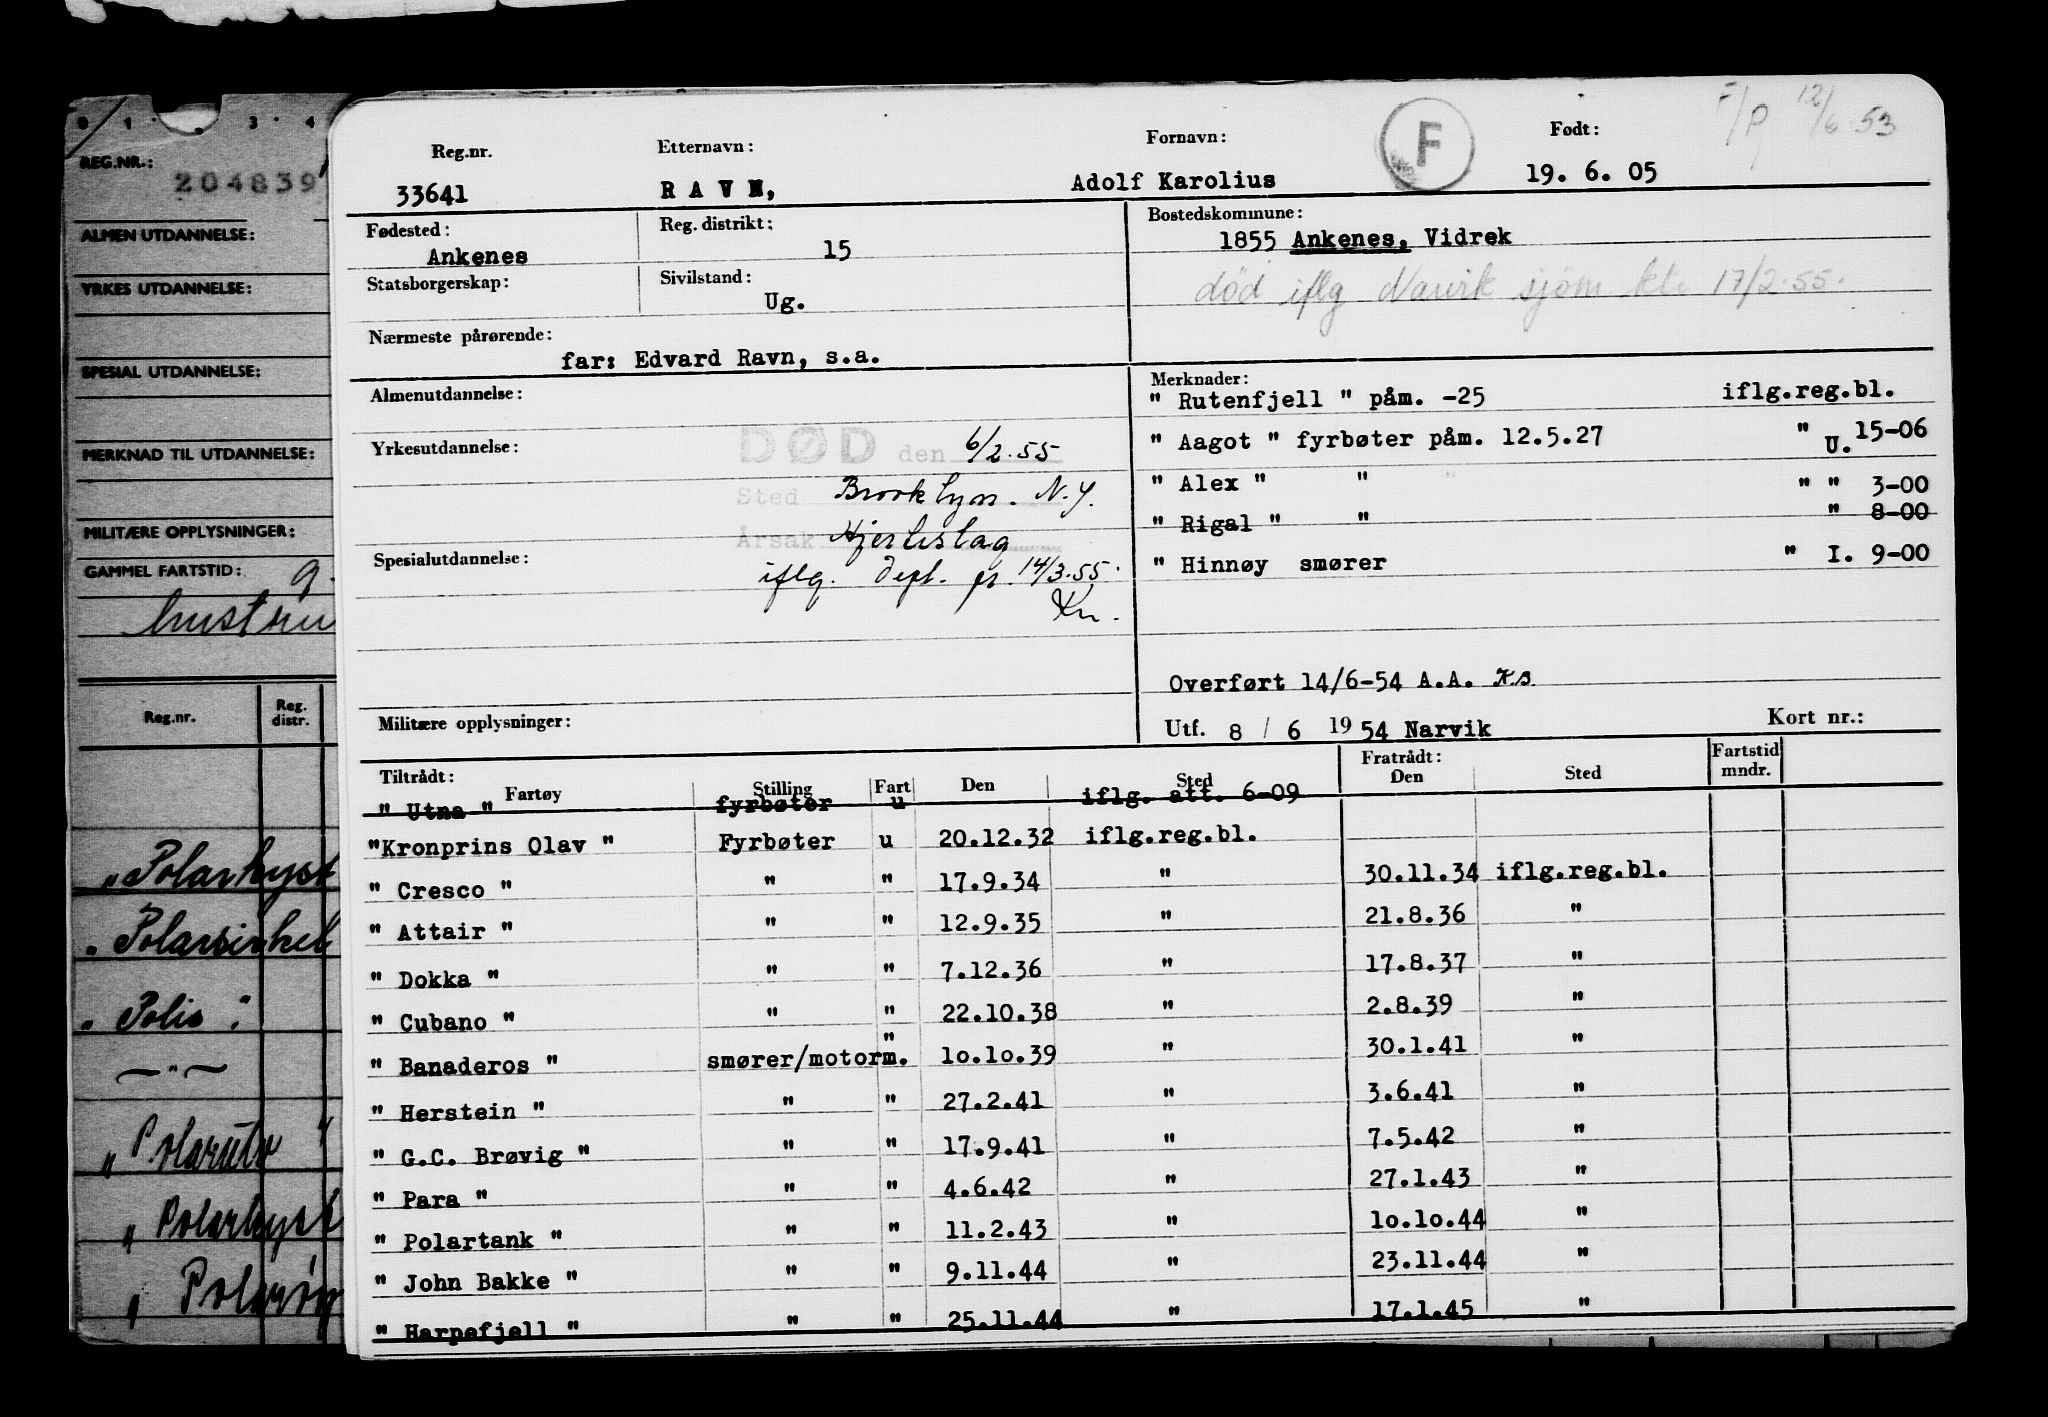 0 1 . 3 4
REG.NR.:
204839
ALMEN UTDANNELSE:
YRKES UTDANNELSE:
SPESIAL UTDANNELSE:
MERKNAD TIL UTDANNELSE:
MILITÆRE OPPLYSNINGER:
GAMMEL FARTSTID: 9
Reg.nr. Reg. distr.
"Polarkyst
"Polarsirkel
"Polis".
— " —
"Polaruto"
"Polarkyst
F/P 12/6 53
Reg.nr. Etternavn: Fornavn: F Født:
33641 RAVN, Adolf Karolius 19. 6. 05
Fødested: Reg. distrikt: Bostedskommune:
Ankenes 15 1855 Ankenes, Vidrek
Statsborgerskap: Sivilstand:
Ug.
død iflg Narvik sjöm.kt. 17/2.55.
Nærmeste pårørende:
far: Edvard Ravn, s.a.
Almenutdannelse:
Yrkesutdannelse:
DØD den 6/2.55
Sted Brooklyn. N.Y.
Årsak Hjerteslag
Spesialutdannelse:
iflg. Dept. pr. 14/3.55.
Kn.
Militære opplysninger:
Merknader:
" Rutenfjell " påm. -25 iflg.reg.bl.
" Aagot " fyrbøter påm. 12.5.27 " U. 15-06
" Alex " " " " 3-00
" Rigal " " " 8-00
" Hinnøy smører " I. 9-00
Overført 14/6-54 A.A. K.S.
Utf. 8 / 6 1954 Narvik Kort nr.:
Tiltrådt: Fratrådt: Fartstid
Fartøy Stilling Fart Den Sted Den Sted mndr.
" Utna " fyrbøter u iflg. att. 6-09
"Kronprins Olav " Fyrbøter u 20.12.32 iflg.reg.bl.
" Cresco " " " 17.9.34 " 30.11.34 iflg.reg.bl.
" Attair " " " 12.9.35 " 21.8.36 "
" Dokka " " " 7.12.36 " 17.8.37 "
" Cubano " " " 22.10.38 " 2.8.39 "
" Banaderos " smører/motorm. " 10.10.39 " 30.1.41 "
" Herstein " " " 27.2.41 " 3.6.41 "
" G.C. Brøvig " " " 17.9.41 " 7.5.42 "
" Para " " " 4.6.42 " 27.1.43 "
" Polartank " " " 11.2.43 " 10.10.44 "
" John Bakke " " " 9.11.44 " 23.11.44 "
" Harpefjell " " " 25.11.44 " 17.1.45 "